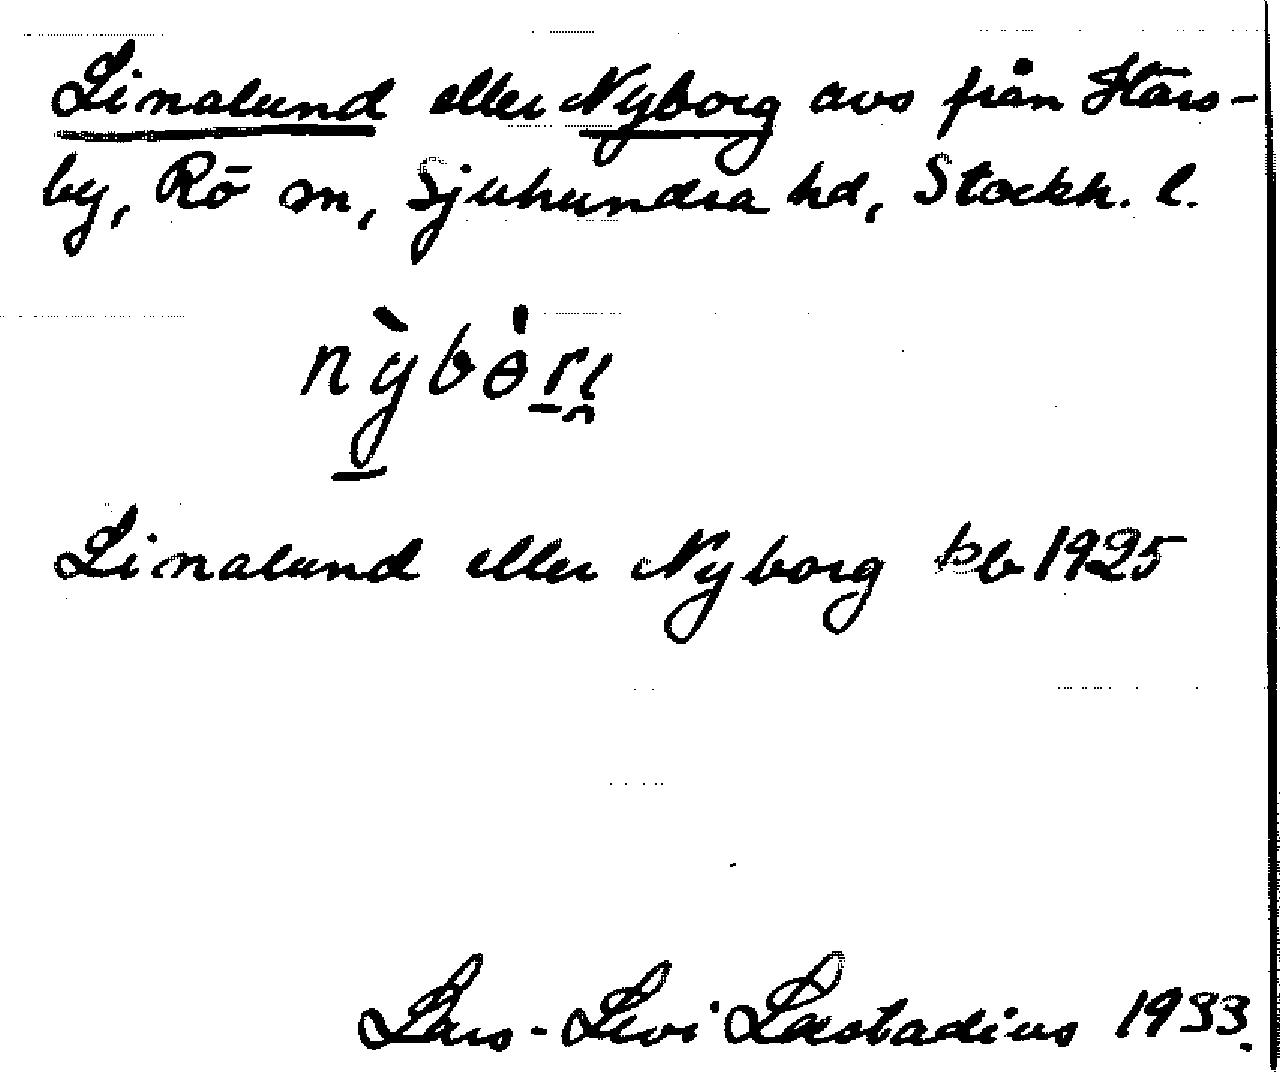 Linalund eller Nyborg avs från Hårs-
by, Rö sn, Sjuhundra hd, Stockh. l.
nỳbɵ̀rı̯
Linalund eller Nyborg kb 1925
Lars-Levi Læstadius 1933.